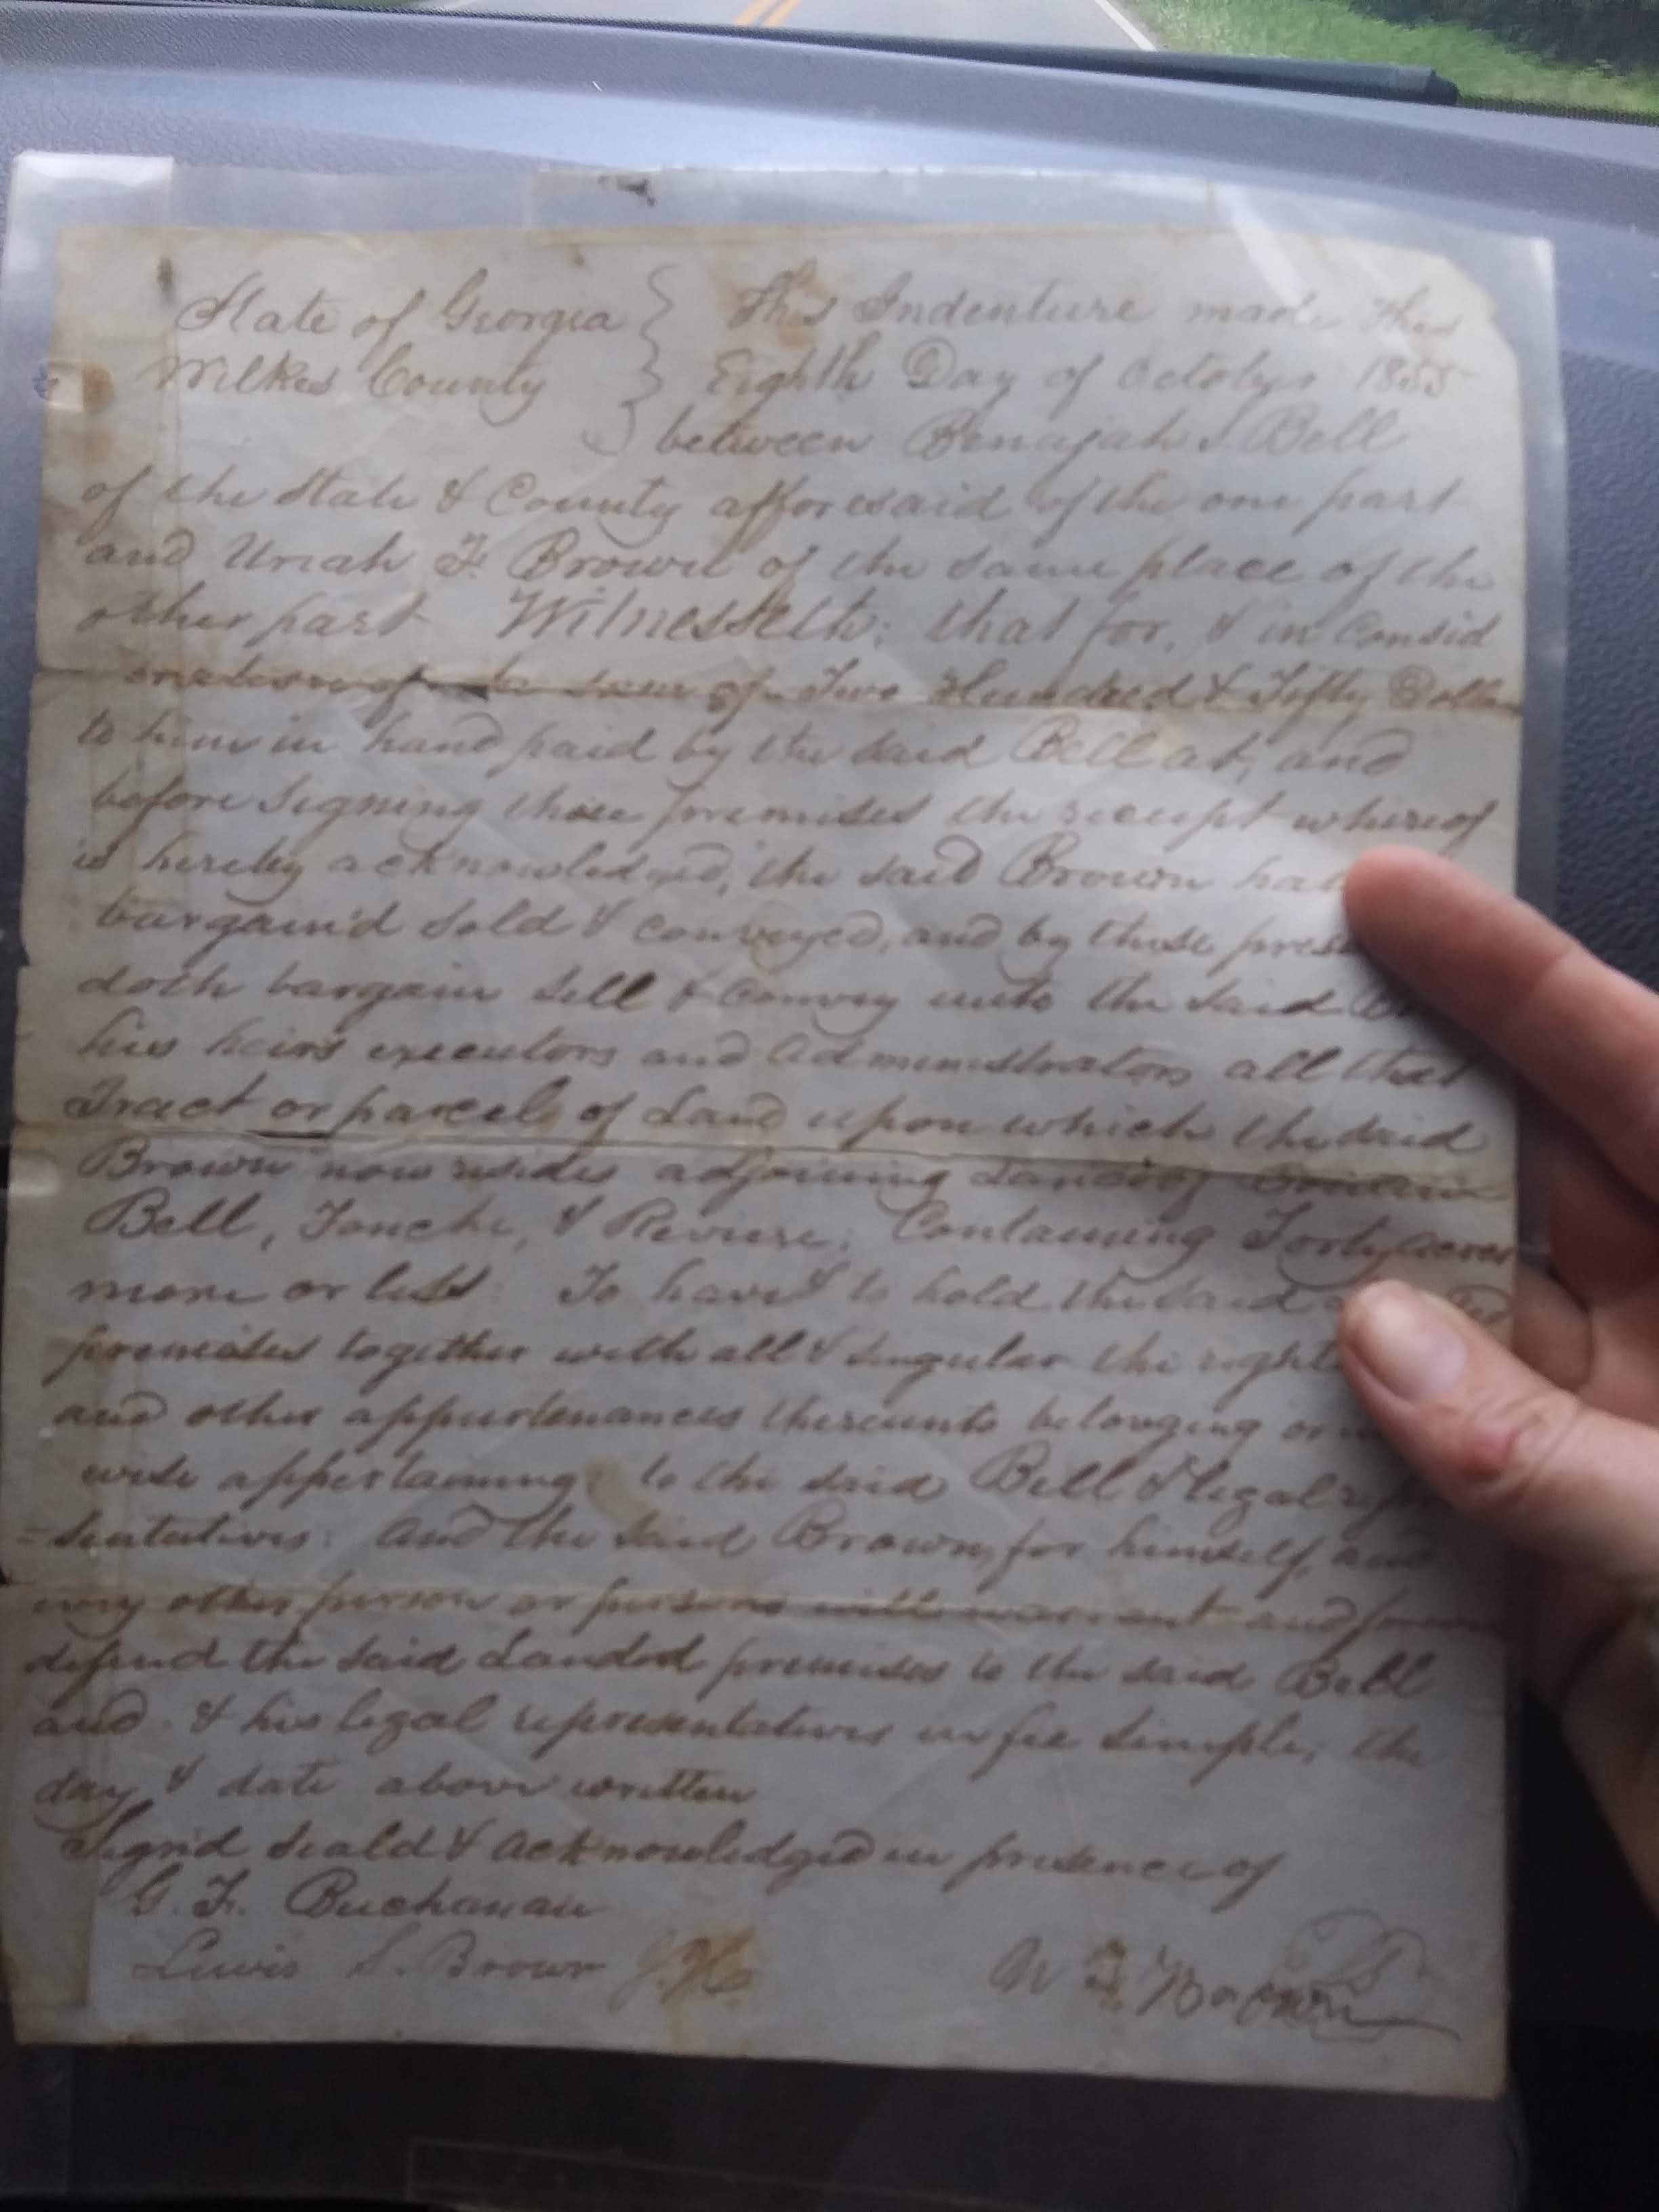 State of Georgia } This Indenture made this
Wilkes County } Eighth Day of October 1855
} between Benajah S. Bell
of the State & County afforesaid of the one part
and Uriah F. Brown of the same place of the
other part Witnesseth; that for, & in Consid
eration of the sum of Two Hundred & Fifty Dollars
to him in hand paid by the said Bell at, and
before signing these premises the receipt whereof
is hereby acknowledged, the said Brown hath
bargain'd sold & conveyed, and by these pres
doth bargain sell & convey unto the said B
his heirs executors and administrators all that
Tract or parcel of Land upon which the said
Brown now resides adjoining Lands of
Bell, & Reviere; Containing Forty acres
more or less: To have & to hold the said
premises together with all & singular the right
and other appurtenances thereunto belonging or
wise appertaining; to the said Bell & legal repr
-sentatives: and the said Brown, for himself, and
every other person or persons will warrant and
defend the said Landed premises to the said Bell
and & his legal representatives in fee simple, the
day & date above written
Signd seald & acknowledged in presence of
G. F. Buchanan
Lewis S. Brown U F. Brown